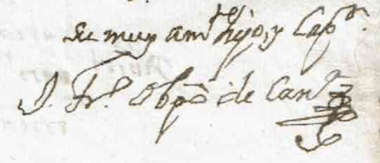 su muy amte hijo, y Capn.
D. Fr. Obpo de Canra